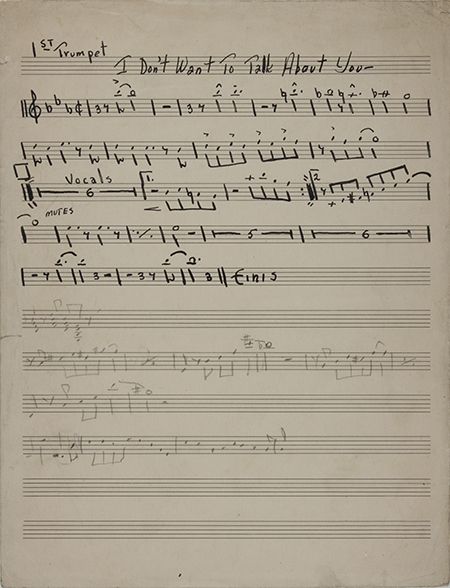 1ST Trumpet
I Don't Want To Talk About You—
Vocals
6
1.
2
MUTES
5
6
Finis